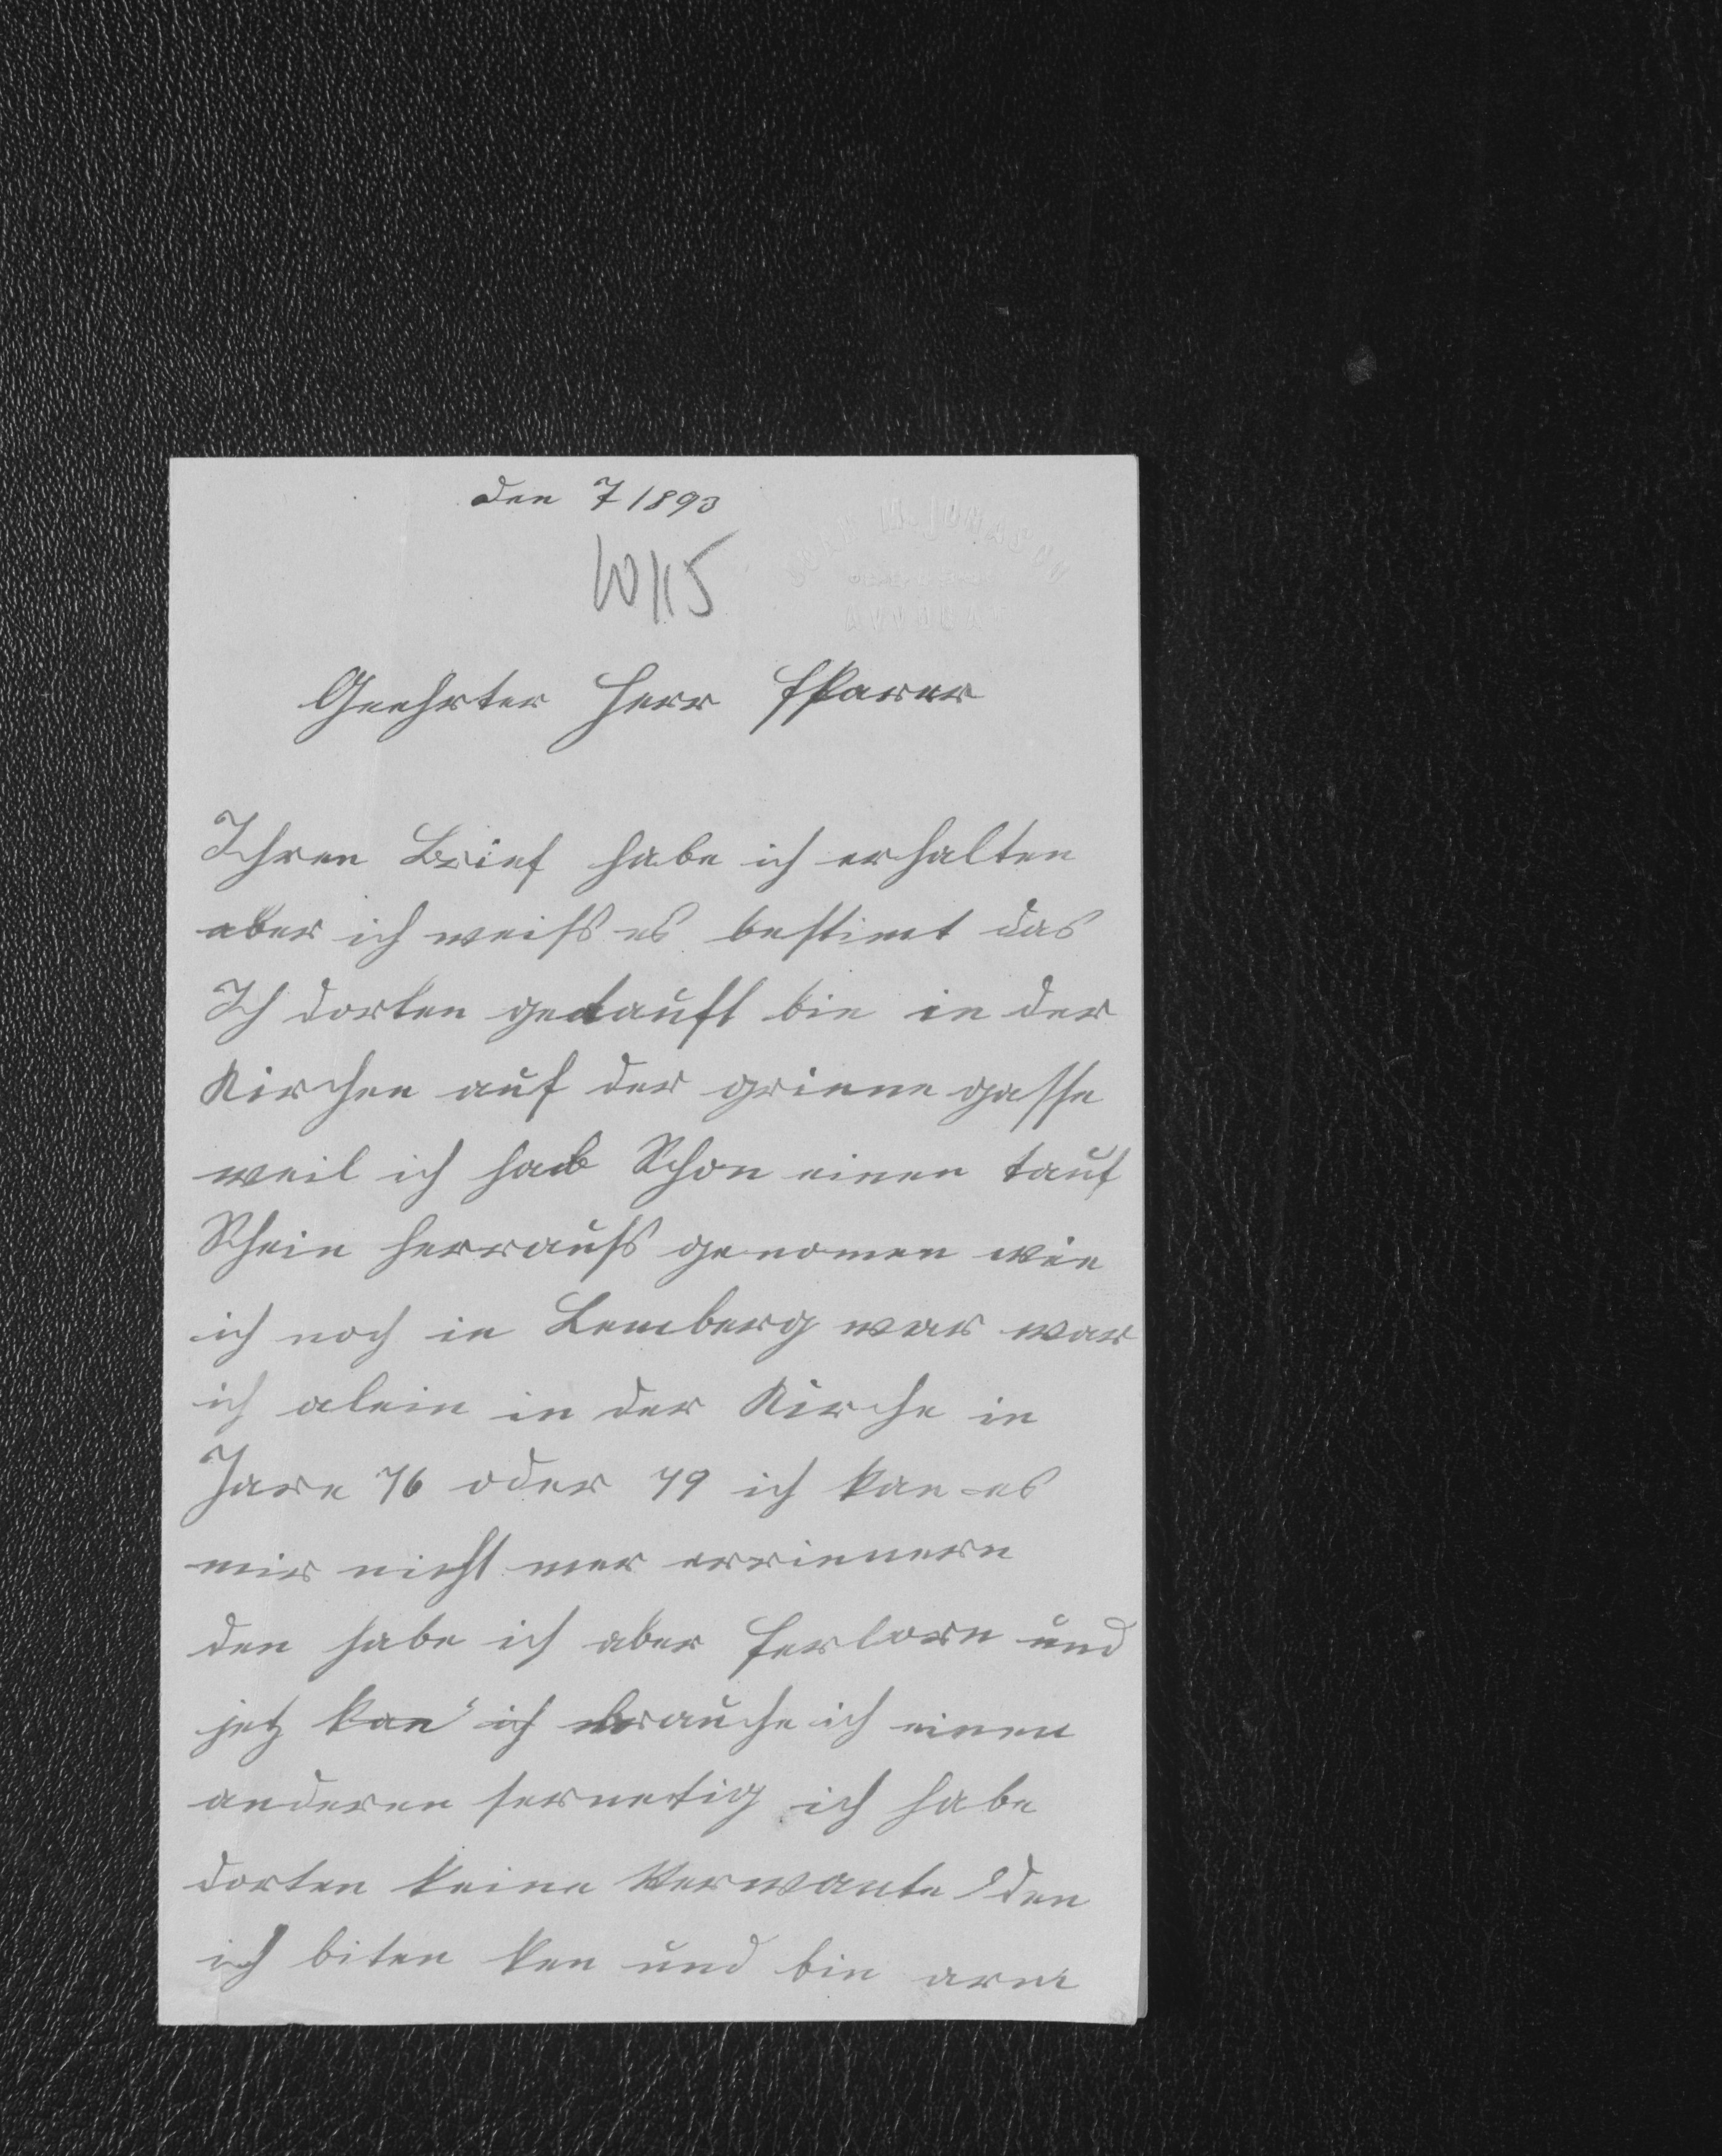 den 7 1893
10/15
Geehrter Herr Pfarer
Ihren Brief habe ich erhalten
aber ich weiß es bestimt das
Ich dorten getauft bin in der
Kirchen auf der grienne gasse
weil ich hab Schon einen tauf
Schein herrauß genomen wie
ich noch in Lemberg war war
ich alein in der Kirche in
Jare 76 oder 79 ich kan es
mir nicht mer errinnern
den habe ich aber ferlorn und
jetz kan ich brauche ich einen
anderen fernetig ich habe
dorten keine Verwante den
ich biten ken und bin arm